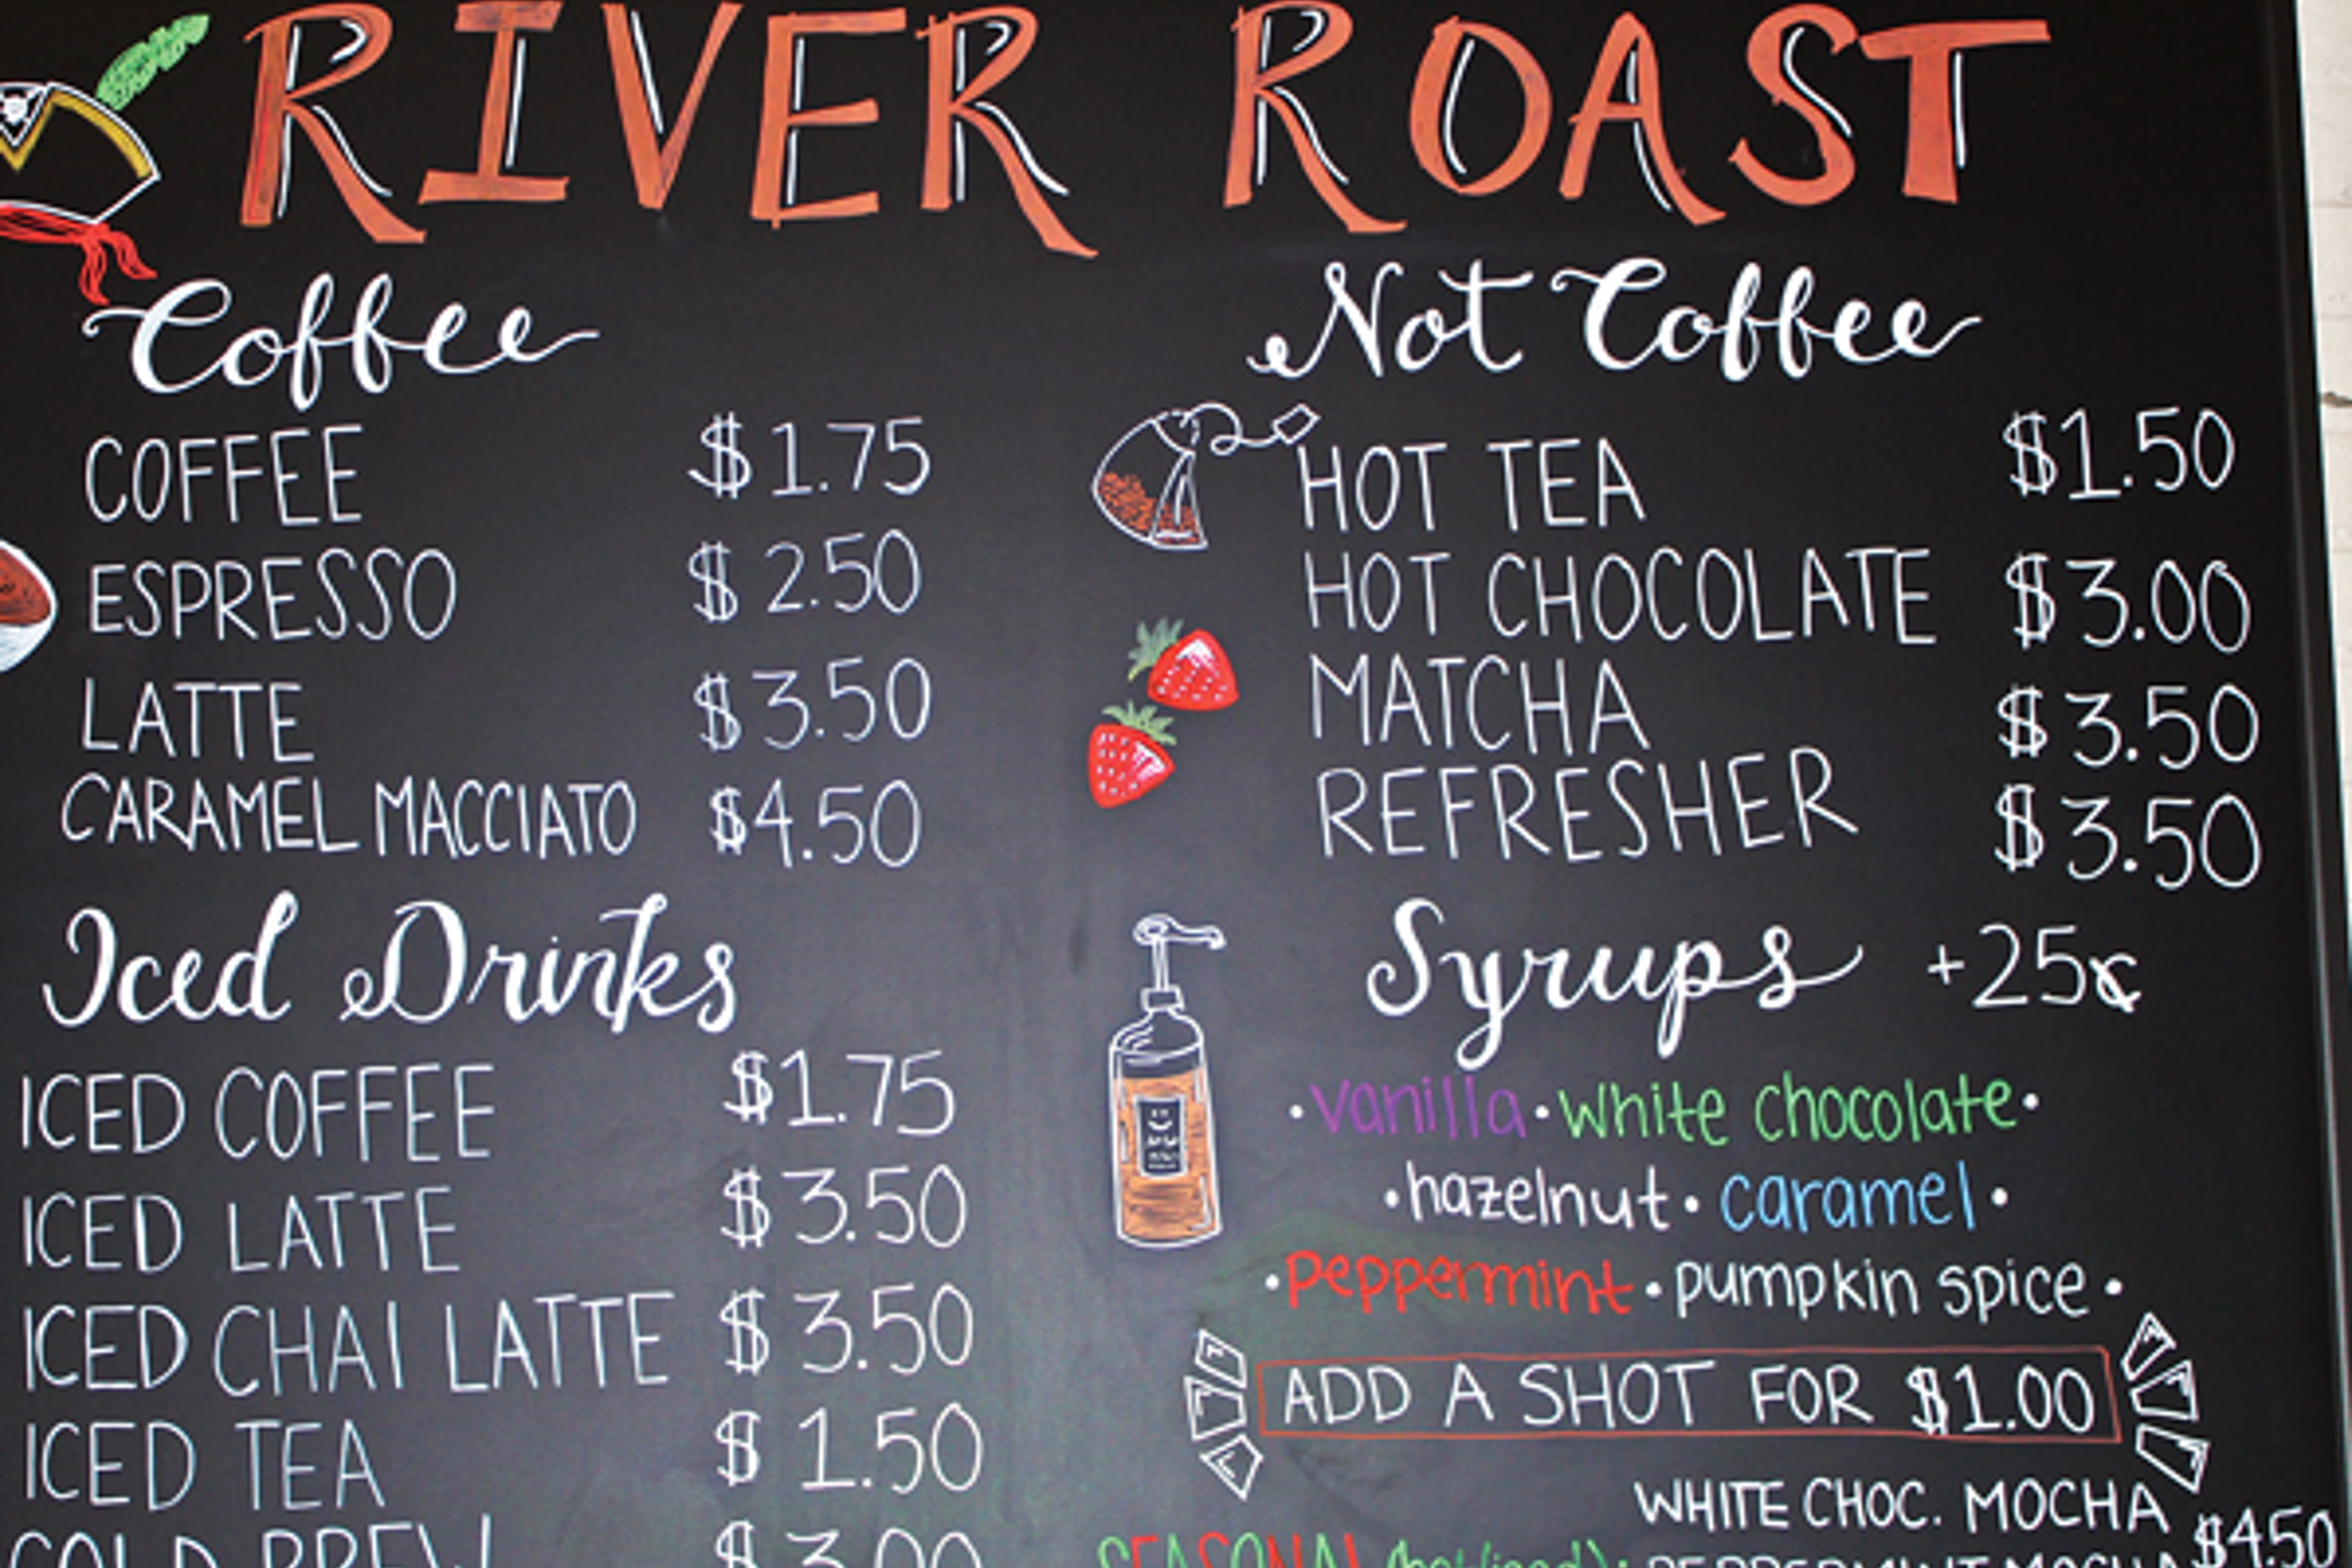 RIVER ROAST
Coffee
COFFEE $1.75
ESPRESSO $2.50
LATTE $3.50
CARAMEL MACCIATO $4.50
Iced Drinks
ICED COFFEE $1.75
ICED LATTE $3.50
ICED CHAI LATTE $3.50
ICED TEA $1.50
COLD BREW $3.00
Not Coffee
HOT TEA $1.50
HOT CHOCOLATE $3.00
MATCHA $3.50
REFRESHER $3.50
Syrups +25¢
•vanilla•white chocolate•
•hazelnut•caramel•
•peppermint•pumpkin spice•
ADD A SHOT FOR $1.00
WHITE CHOC. MOCHA
SEASONAL (hot/iced): PEPPERMINT MOCHA $450